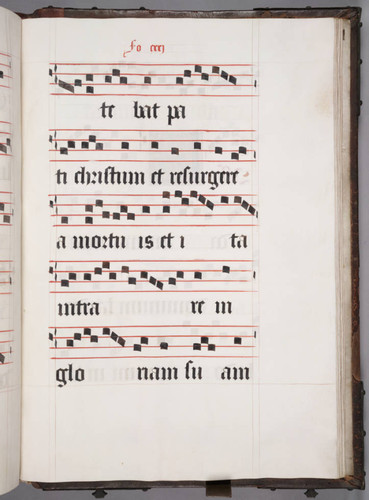 fo ccxj
te bat pa
ti christum et resurgere
a mortu is et i ta
intra re in
glo riam su am